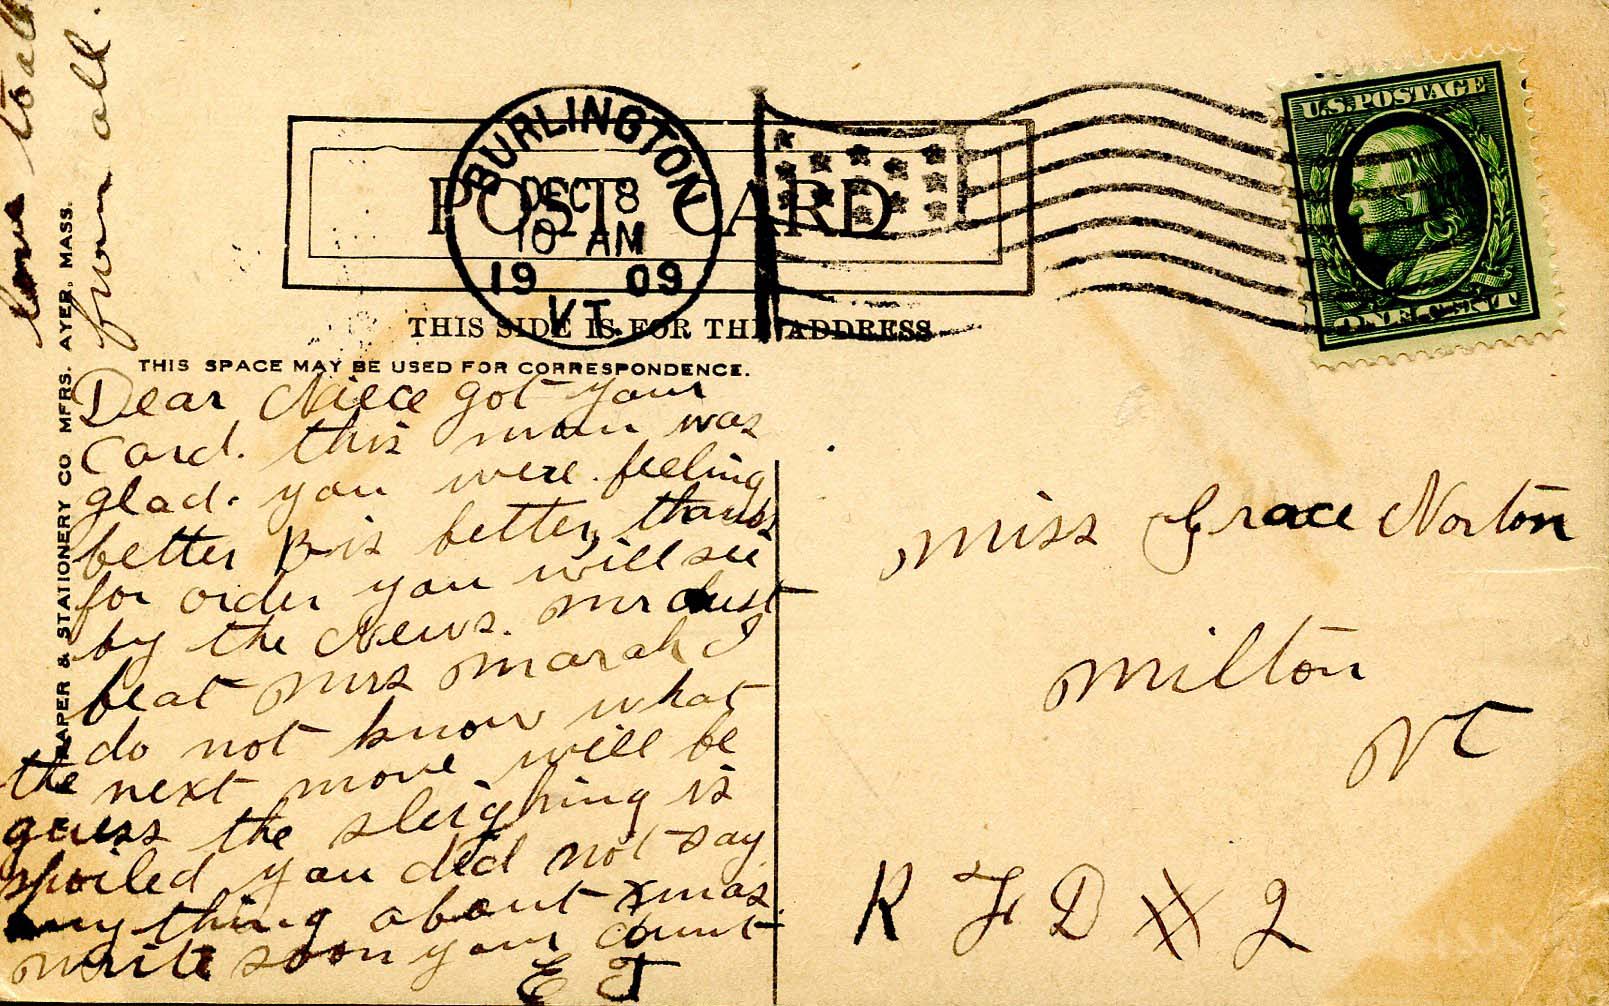 love to all
from all.
BURLINGTON
DEC 8
10 AM
1909
VT.
POST CARD
U.S. POSTAGE
THIS SIDE IS FOR THE ADDRESS
THIS SPACE MAY BE USED FOR CORRESPONDENCE.
PAPER & STATIONERY CO MFRS. AYER, MASS.
Dear Niece got your
Card. this morn was
glad. you were feeling
better B is better, thanks
for order you will see
by the News. Mr
beat Mrs Marsh I
do not know what
the next move will be
guess the sleighing is
spoiled you did not say
any thing about Xmas
write soon your Aunt
E J
Miss Grace Norton
Milton
Vt
R F D # 2